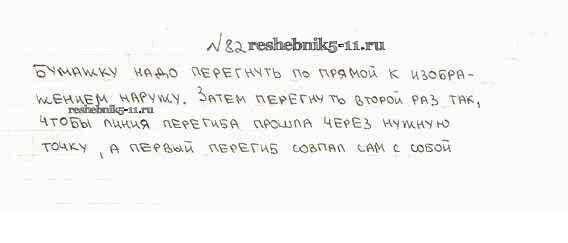 №82 reshebnik5-11.ru
БУМАЖКУ НАДО ПЕРЕГНУТЬ ПО ПРЯМОЙ К ИЗОБРА-
ЖЕНИЕМ НАРУЖУ. ЗАТЕМ ПЕРЕГНУТЬ ВТОРОЙ РАЗ ТАК,
reshebnik5-11.ru
ЧТОБЫ ЛИНИЯ ПЕРЕГИБА ПРОШЛА ЧЕРЕЗ НУЖНУЮ
ТОЧКУ, А ПЕРВЫЙ ПЕРЕГИБ СОВПАЛ САМ С СОБОЙ